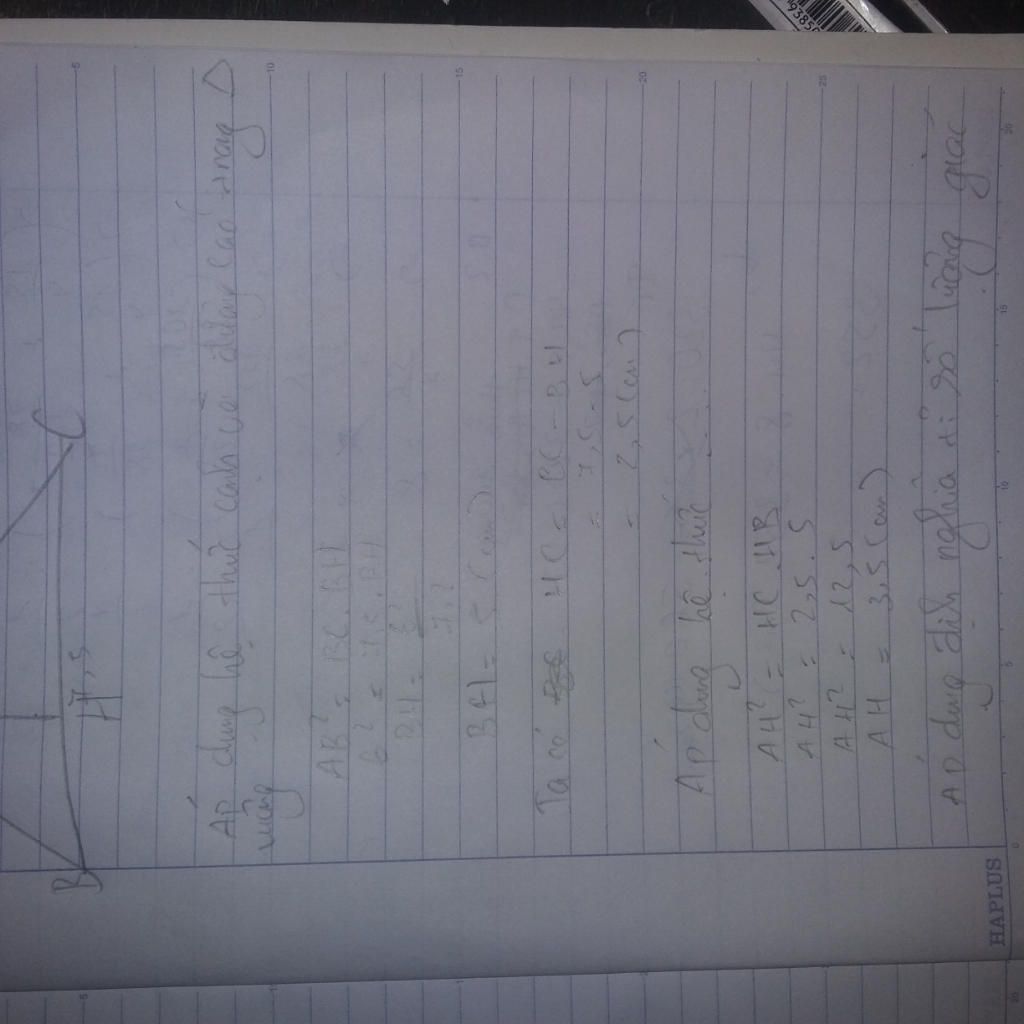 B
H
C
7,5
Áp dụng hệ thức cạnh và đường cao trong △
vuông
AB² = BC.BH
6² = 7,5.BH
BH = 6²
7,2
BH = 5 (cm)
Ta có HC = BC - BH
= 7,5 - 5
= 2,5 (cm)
Áp dụng hệ thức
AH² = HC.HB
AH² = 2,5.5
AH² = 12,5
AH = 3,5 (cm)
Áp dụng định nghĩa tỉ số lượng giác
HAPLUS
5
10
15
20
25
5
10
15
20